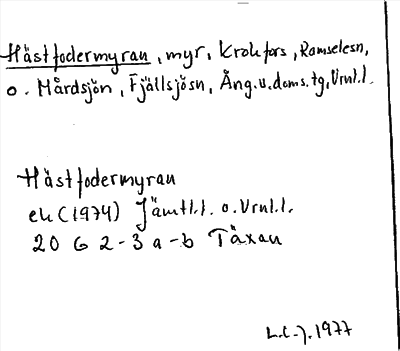 Hästfodermyran, myr, Krokfors, Ramselesn,
o. Mårdsjön, Fjällsjösn, Ång.v.doms.tg, Vrnl.l.
Hästfodermyran
ek (1974) Jämtl.l. o. Vrnl.l.
20 G 2-3 a-b Täxan
L.L.J. 1977